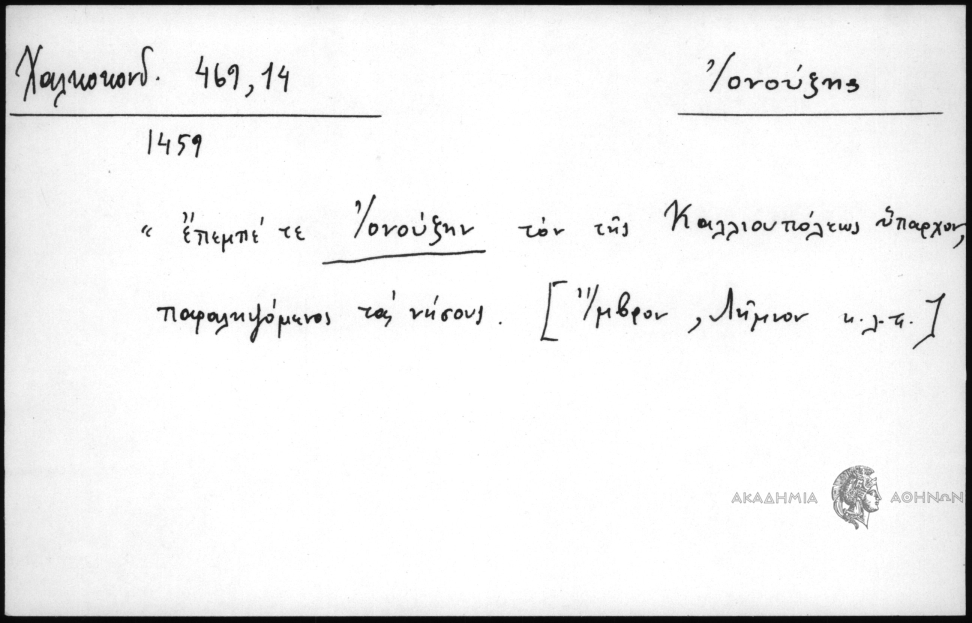 Χαλκοκονδ. 469,14
Ἰονούξης
1459
“ ἔπεμπέ τε Ἰονούξην τὸν τῆς Καλλιουπόλεως ὕπαρχον,
παραληψόμενος τὰς νήσους. [Ἴμβρον, Λῆμνον κ.λ.π.]
ΑΚΑΔΗΜΙΑ ΑΘΗΝΩΝ